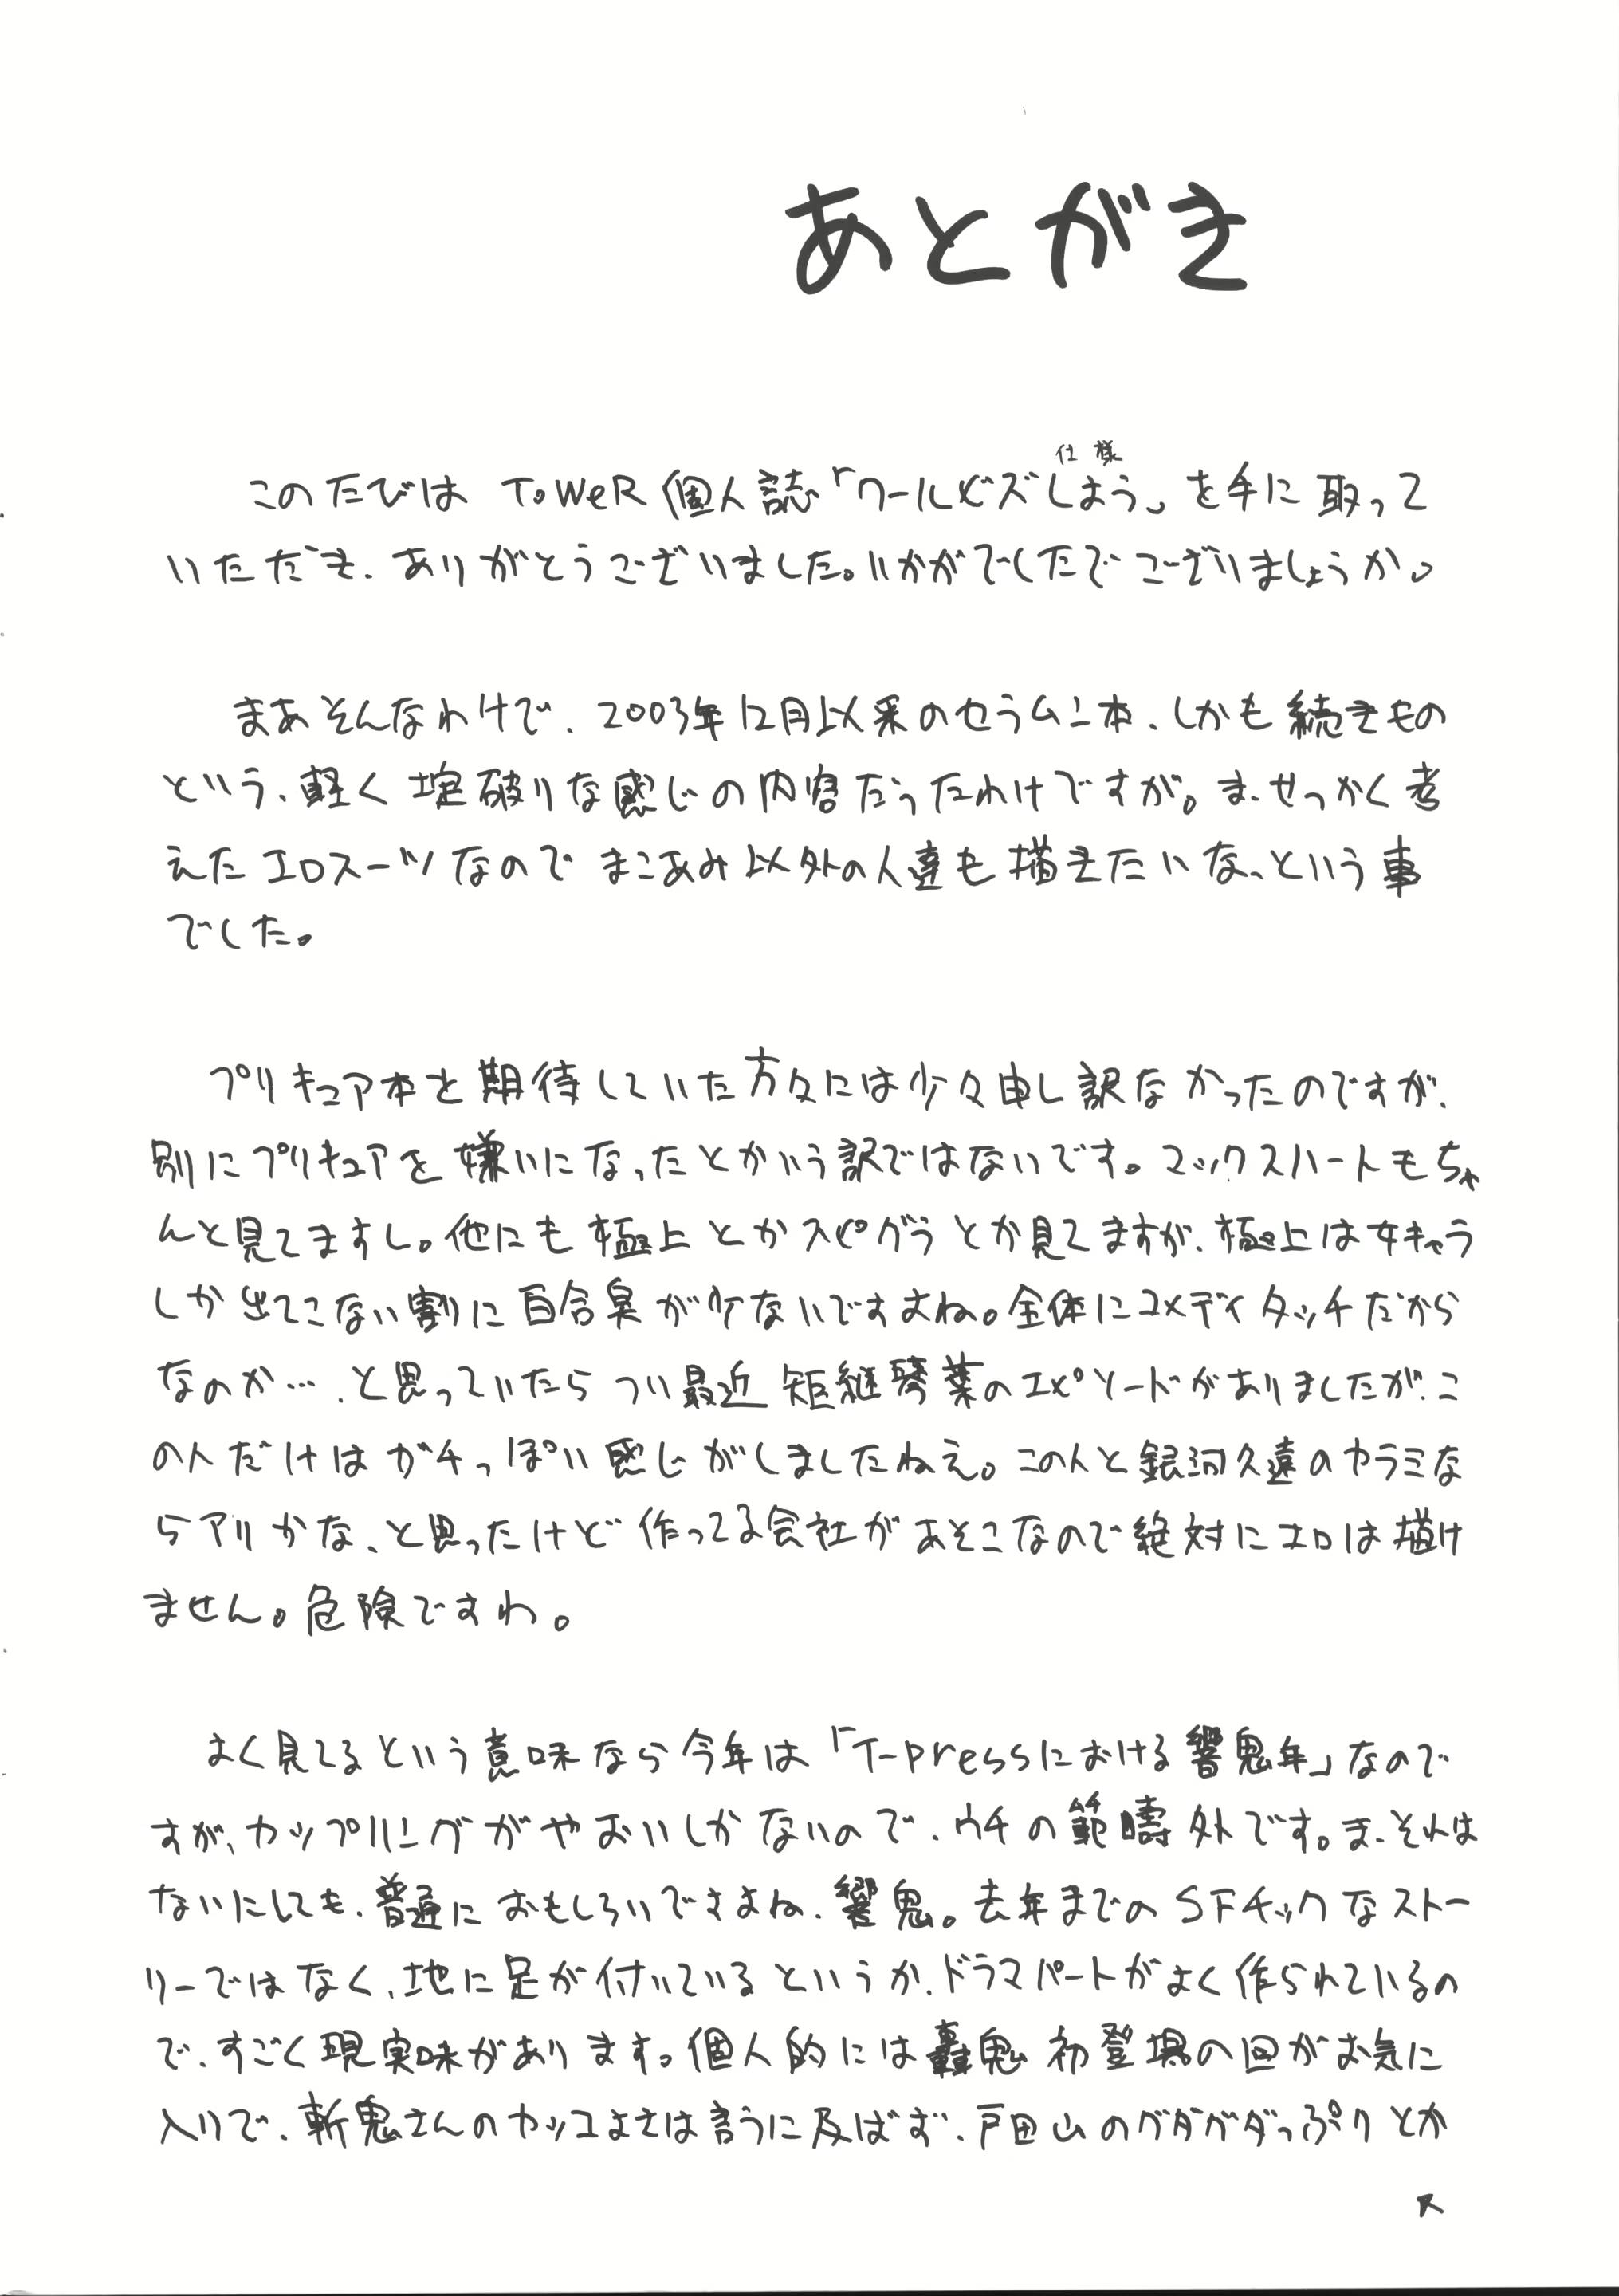 あとがき
仕様
このたびは ToWeR個人誌「クールビズしよう」を手に取って
いただき、ありがとうございました。いかがでしたでございましょうか。
まあそんなわけで、2003年12月以来のセラムン本、しかも続きもの
という、軽く掟破りな感じの内容だったわけですが。ま、せっかく考
えたエロスーツなのでまこあみ以外の人達も描きたいな、という事
でした。
プリキュア本を期待していた方々には少々申し訳なかったのですが、
別にプリキュアを嫌いになったとかいう訳ではないです。マックスハートもちゃ
んと見てますし。他にも極上とかスピグラとか見てますが、極上は女キャラ
しか出てこない割に百合臭が少ないですよね。全体にコメディタッチだから
なのか…、と思っていたらつい最近矩継琴葉のエピソードがありましたが、こ
の人だけはガチっぽい感じがしましたねえ。この人と銀河久遠のカラミな
らアリかな、と思ったけど作ってる会社があそこなので絶対にエロは描け
ません。危険ですわ。
よく見てるという意味なら今年は「T-pressにおける響鬼年」なので
すが、カップリングがやおいしかないので、ウチの範疇外です。ま、それは
ないにしても、普通におもしろいですよね、響鬼。去年までのSFチックなストー
リーではなく、地に足が付いているというか、ドラマパートがよく作られているの
で、すごく現実味があります。個人的には轟鬼初登場の回がお気に
入りで、斬鬼さんのカッコよさは言うに及ばず、戸田山のグダグダっぷりとか